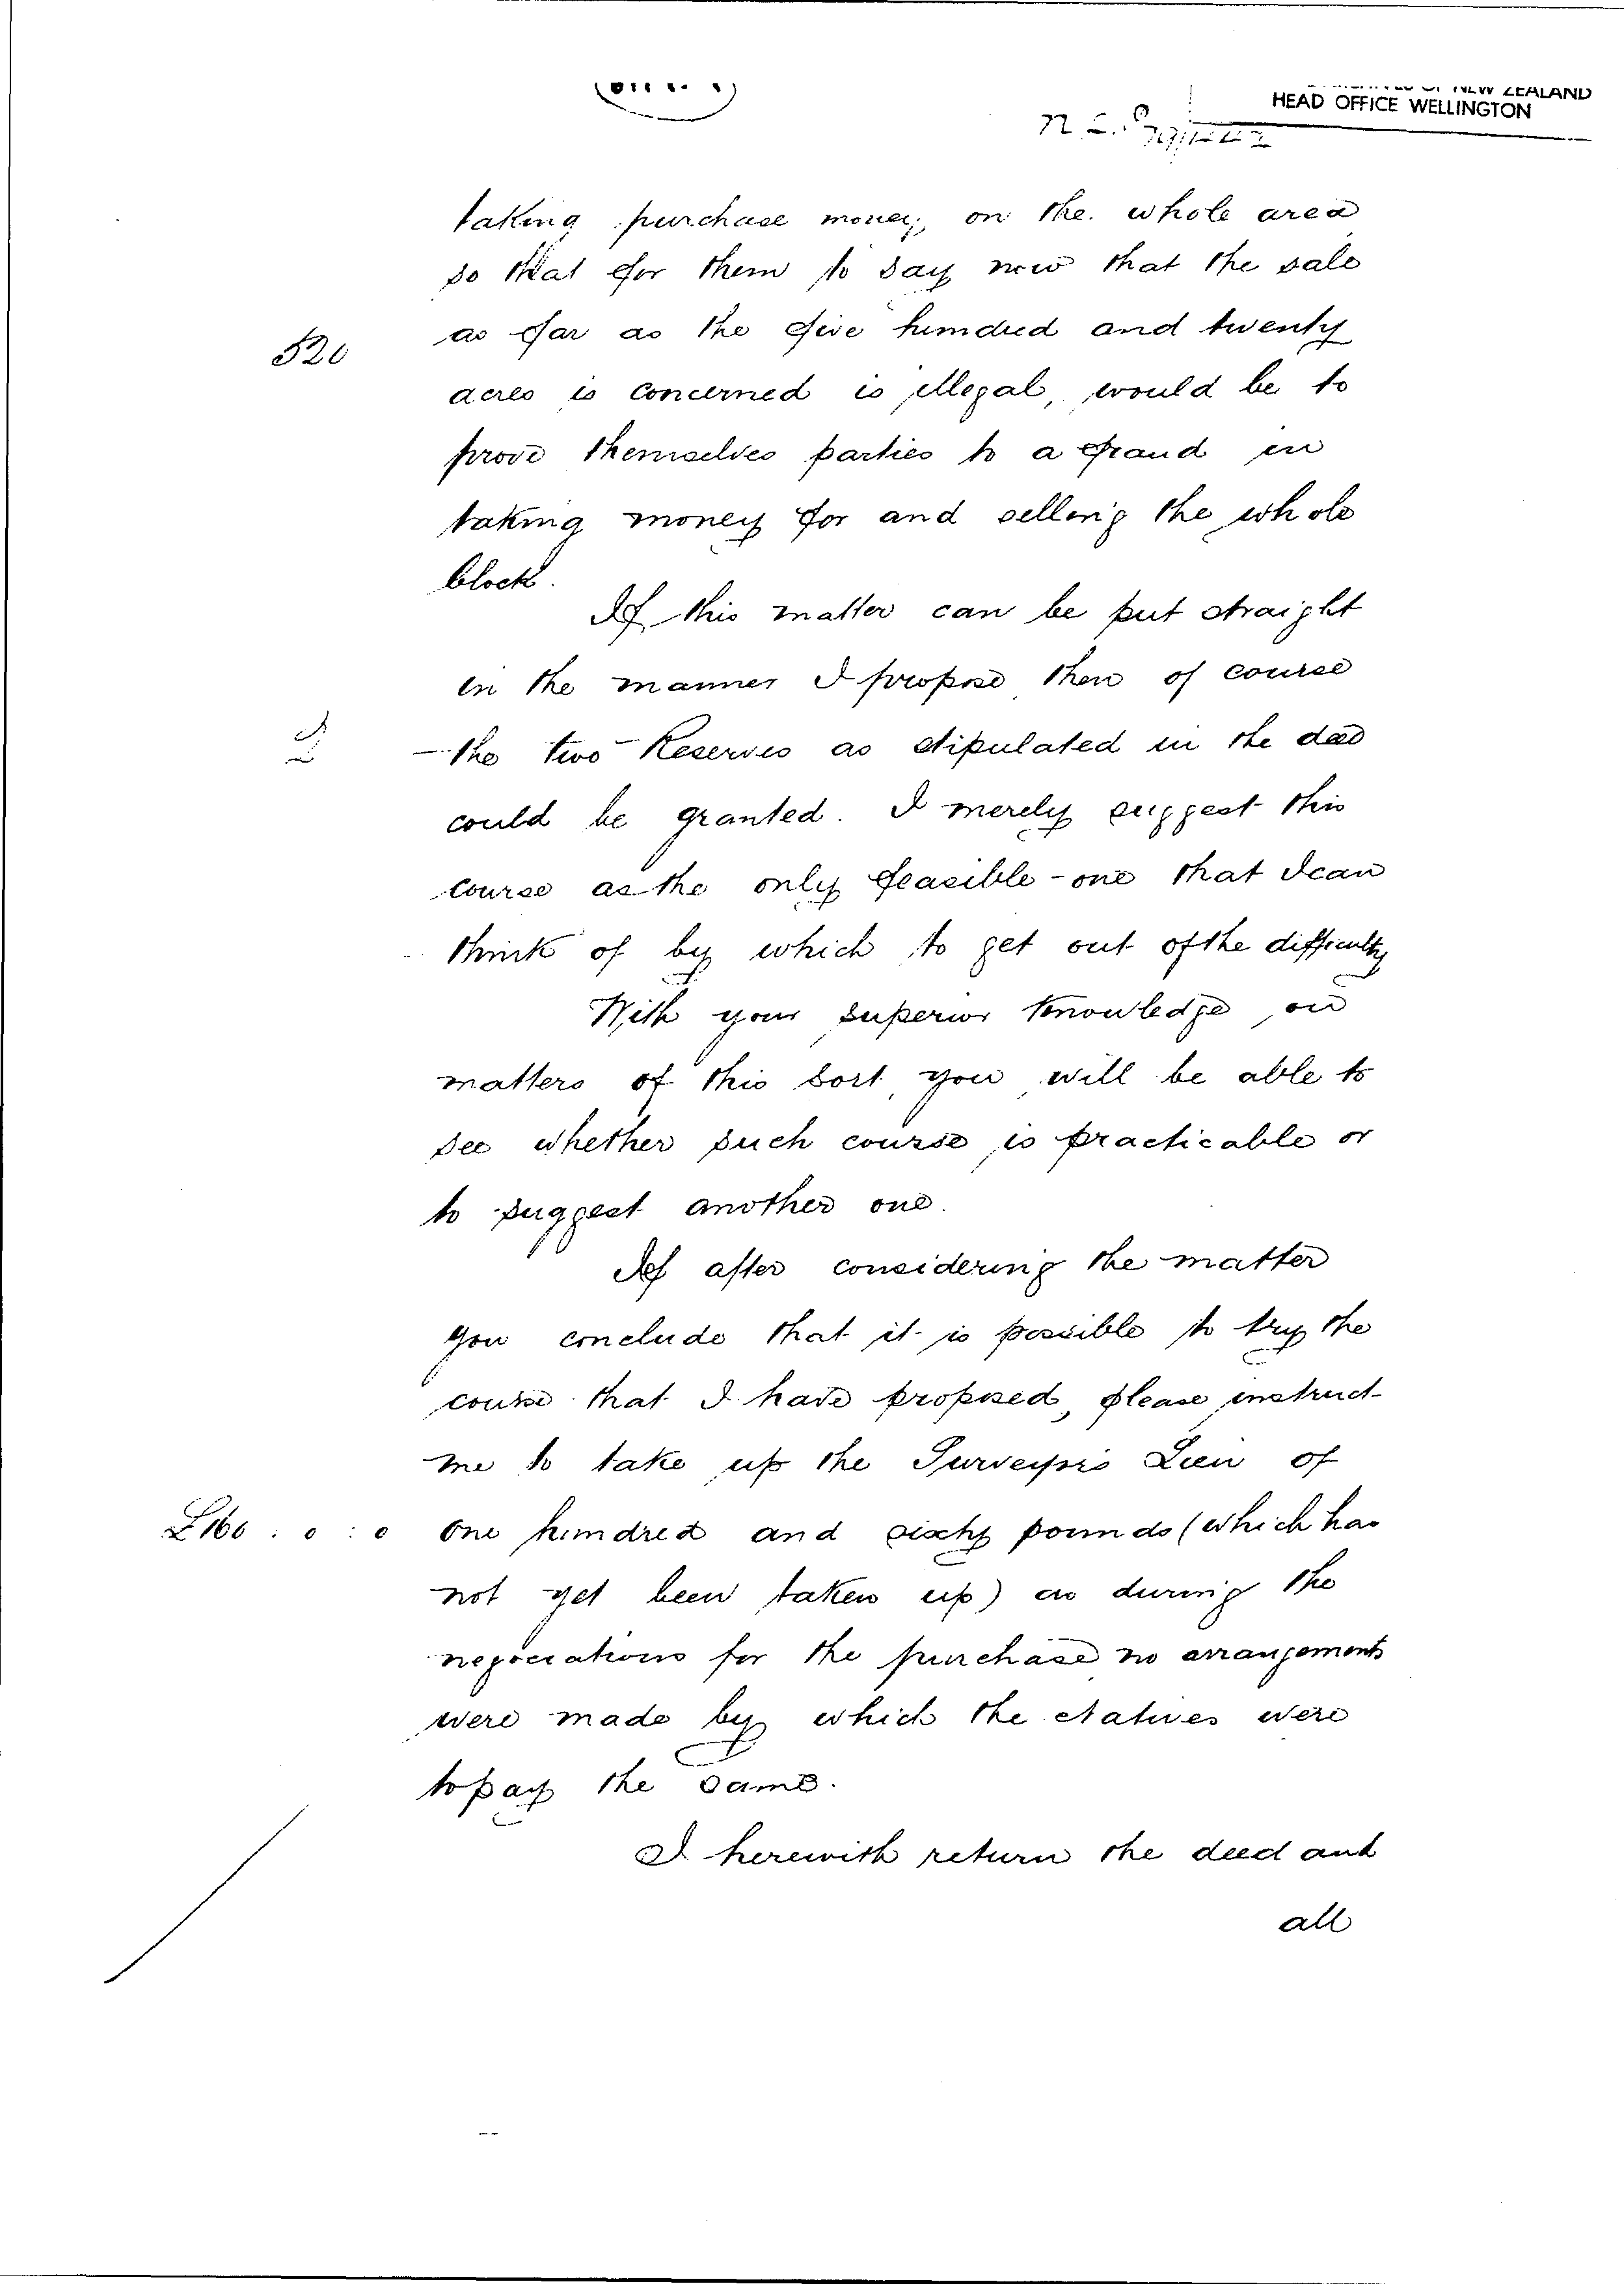 NEW ZEALAND
HEAD OFFICE WELLINGTON
taking purchase money, on the whole area
so that for them to say now that the sale
520
as far as the five hundred and twenty
acres is concerned is illegal, would be to
prove themselves parties to a fraud in
taking money for and selling the whole
block.
If this matter can be put straight
in the manner I propose then of course
2
the two Reserves as stipulated in the deed
could be granted. I merely suggest this
course as the only feasible one that I can
think of by which to get out of the difficulty
With your superior knowledge on
matters of this sort you will be able to
see whether such course is practicable or
to suggest another one.
If after considering the matter
you conclude that it is possible to try the
course that I have proposed, please instruct
me to take up the Surveyors Lien of
£160 : 0 : 0
one hundred and sixty pounds (which has
not yet been taken up) as during the
negociations for the purchase no arrangements
were made by which the Natives were
to pay the same.
I herewith return the deed and
all